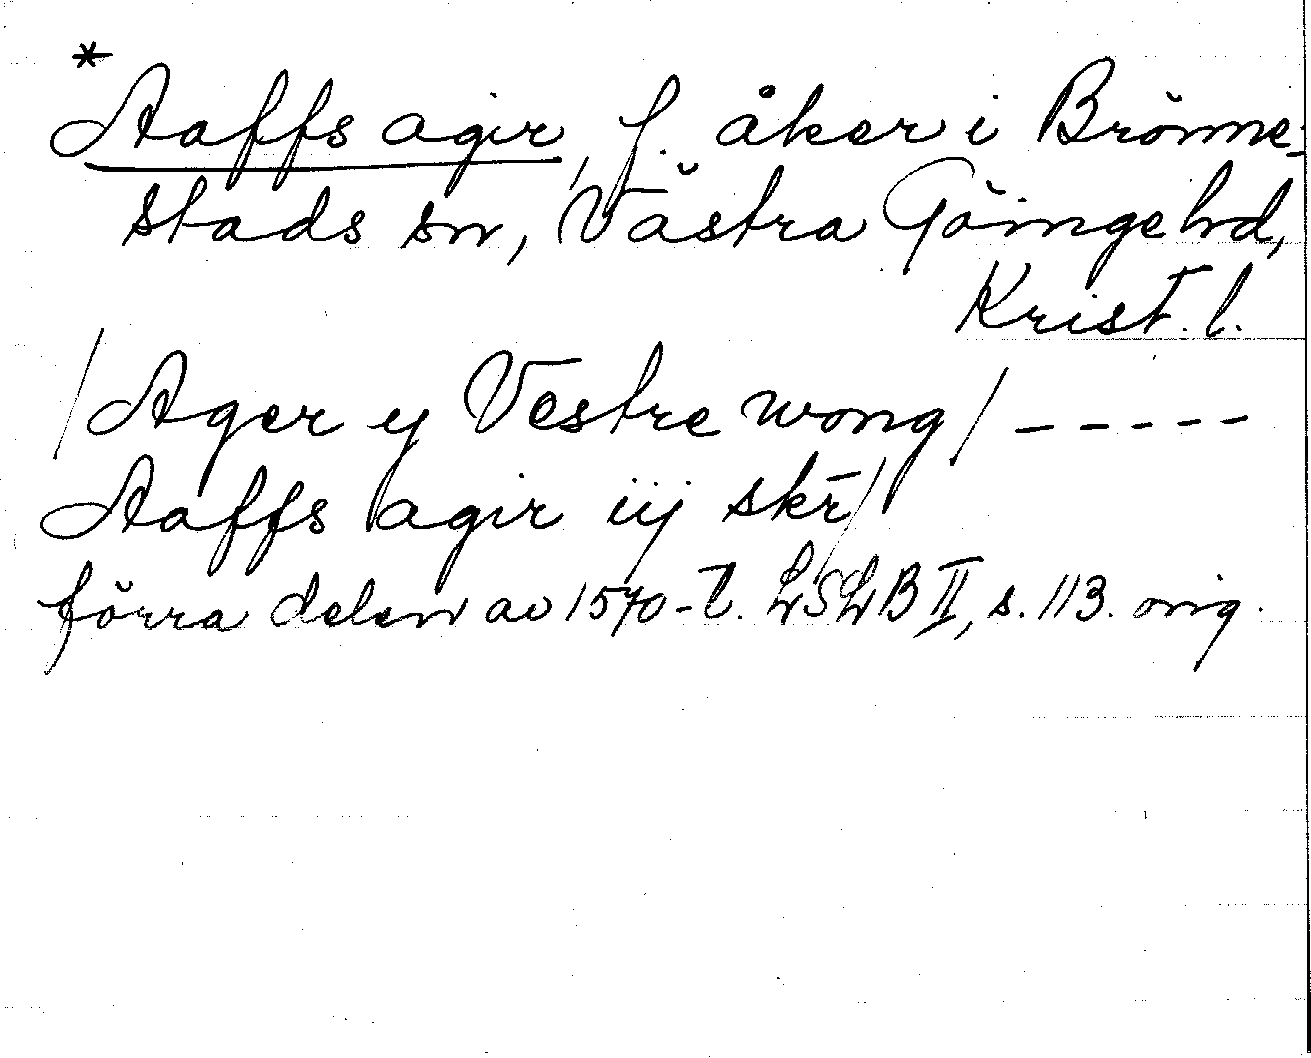 *
Aaffs agir, f. åker i Brönne-
stads sn, Västra Göinge hd,
Krist. l.
/Ager y Vestre wong/ -----
Aaffs agir iij skr̄/
förra delen av 1570-t. LSLB II, s. 113. orig.